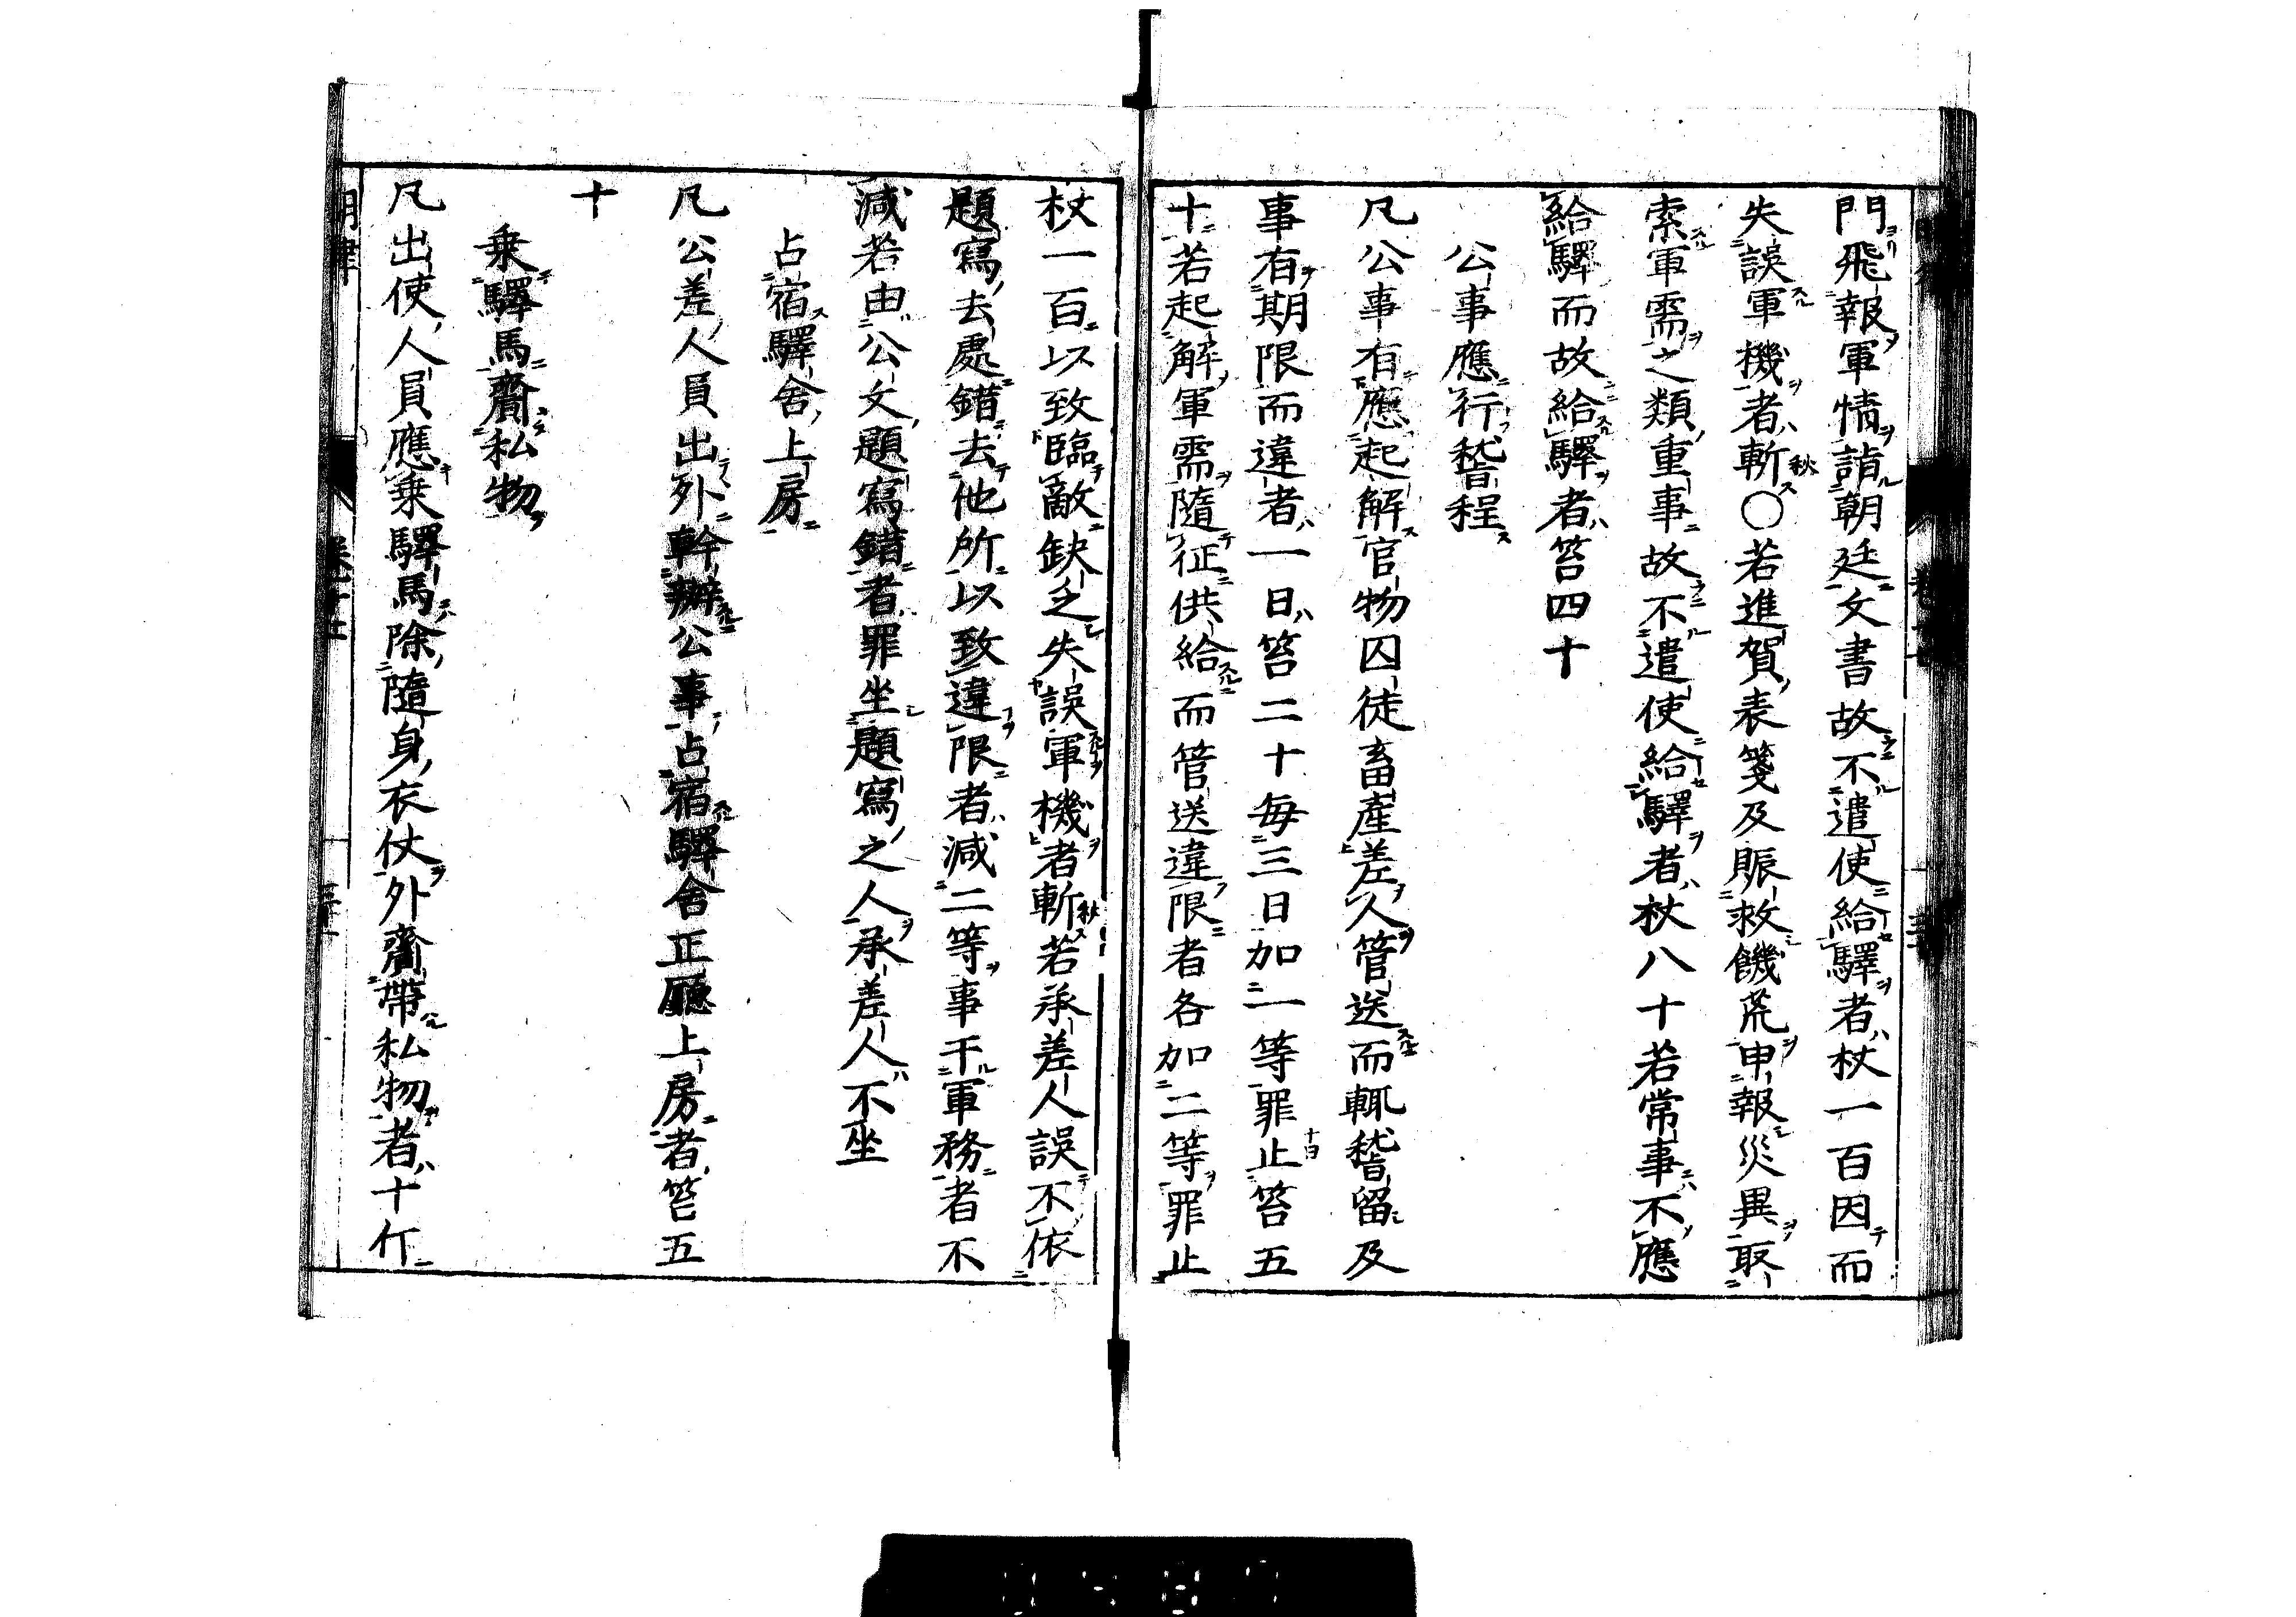 門飛報軍情詣朝廷文書故不遣使給驛者杖一百因而
失誤軍機者斬秋○若進賀表箋及賑救饑荒申報災異取
索軍需之類重事故不遣使給驛者杖八十若常事不應
給驛而故給驛者笞四十
公事應行稽程
凡公事有應起解官物囚徒畜產差人管送而輒稽留及
事有期限而違者一日笞二十每三日加一等罪止十日笞五
十若起解軍需隨征供給而管送違限者各加二等罪止
杖一百以致臨敵缺乏失誤軍機者斬秋若承差人誤不依
題寫去處錯去他所以致違限者減二等事干軍務者不
減若由公文題寫錯者罪坐題寫之人承差人不坐
占宿驛舍上房
凡公差人員出外幹辦公事占宿驛舍正廳上房者笞五
十
乗驛馬齎私物
凡出使人員應乗驛馬除隨身衣仗外齎帶私物者十斤